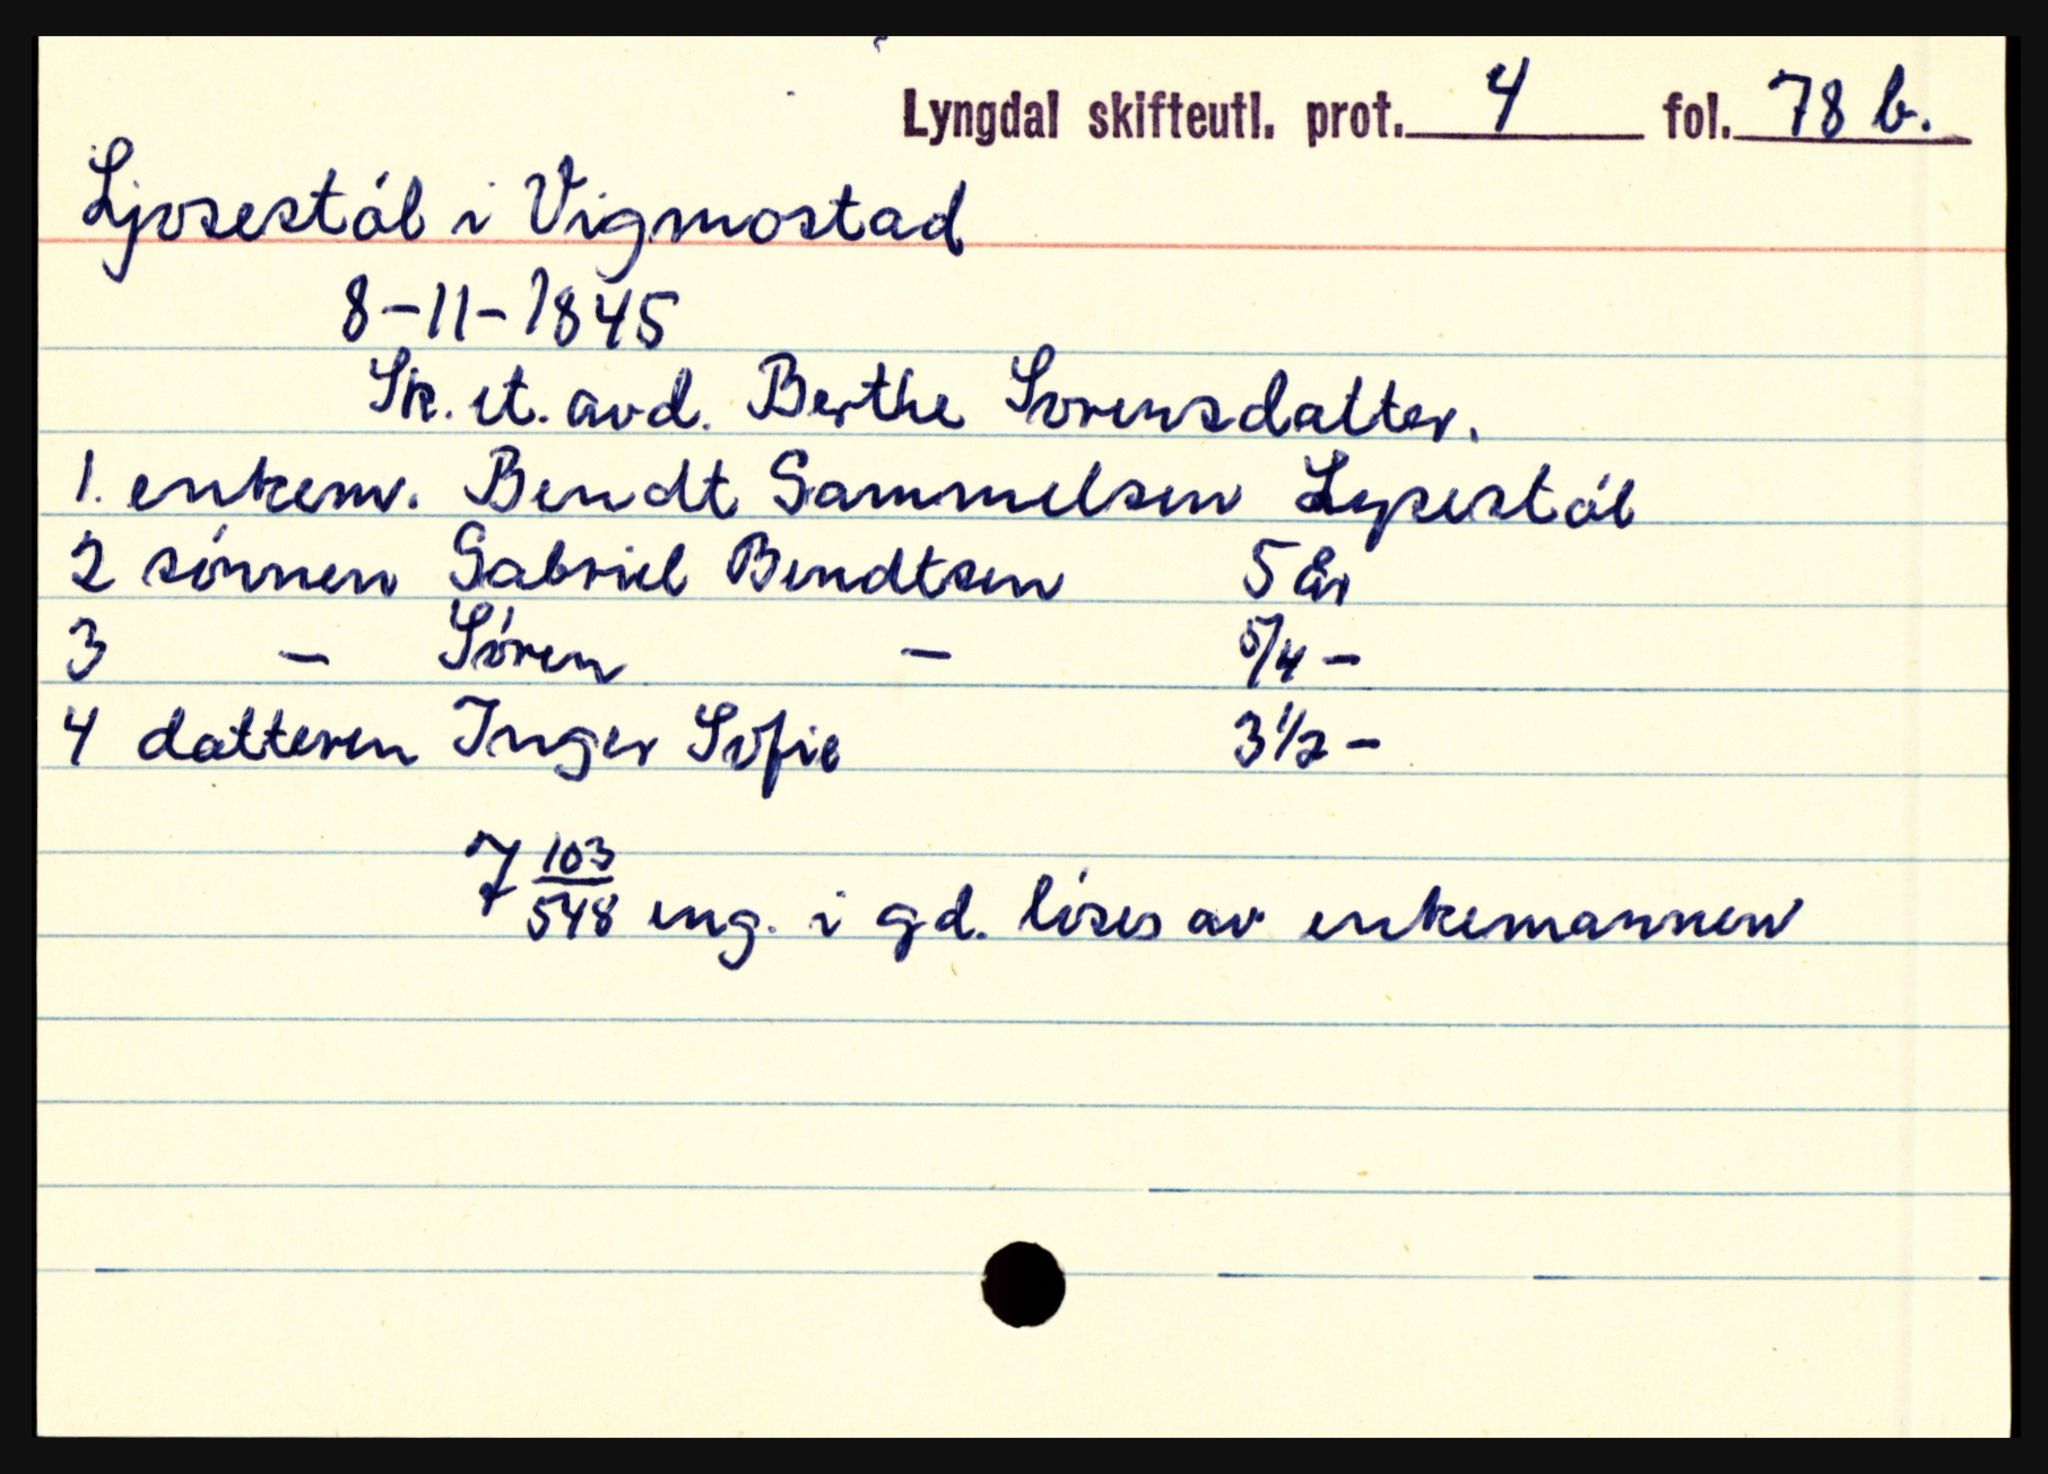 Lyngdal skifteutl. prot. 4 fol. 78 b.
Ljosestøl i Vigmostad
8-11-1845
Sk. et. avd. Berthe Sorensdatter.
1. enkem. Bendt Sammelsen Lysestøl
2 sønnen Gabriel Bendtsen 5 år
3 — Søren — 5/4 —
4 datteren Inger Sofie 3 1/2 —
7 103/548 eng. i gd. løses av enkemannen